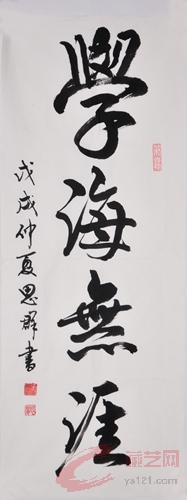 學海無涯
戊戌仲夏思群書
藏艺网
ys121.com